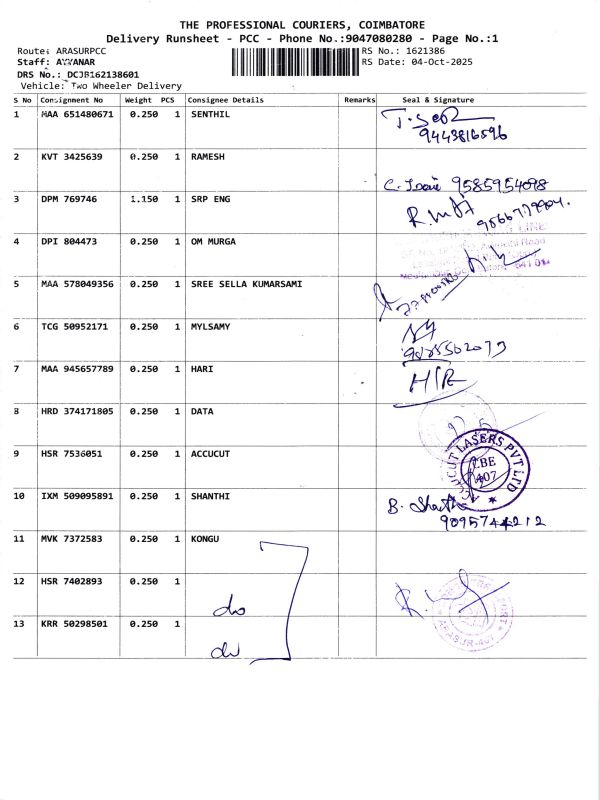 THE PROFESSIONAL COURIERS, COIMBATORE
Delivery Runsheet - PCC - Phone No.:9047080280 - Page No.:1
Route: ARASURPCC RS No.: 1621386
Staff: AYYANAR RS Date: 04-Oct-2025
DRS No.: DCJB162138601
Vehicle: Two Wheeler Delivery
S No Consignment No Weight PCS Consignee Details Remarks Seal & Signature
1 MAA 651480671 0.250 1 SENTHIL
9443816596
2 KVT 3425639 0.250 1 RAMESH
9585954098
3 DPM 769746 1.150 1 SRP ENG
4 DPI 804473 0.250 1 OM MURGA
5 MAA 578049356 0.250 1 SREE SELLA KUMARSAMI
6 TCG 50952171 0.250 1 MYLSAMY
7 MAA 945657789 0.250 1 HARI
8 HRD 374171805 0.250 1 DATA
9 HSR 7536051 0.250 1 ACCUCUT
ACCUCUT LASERS PVT LTD
10 IXM 509095891 0.250 1 SHANTHI
9095744212
11 MVK 7372583 0.250 1 KONGU
12 HSR 7402893 0.250 1 do
13 KRR 50298501 0.250 1 do